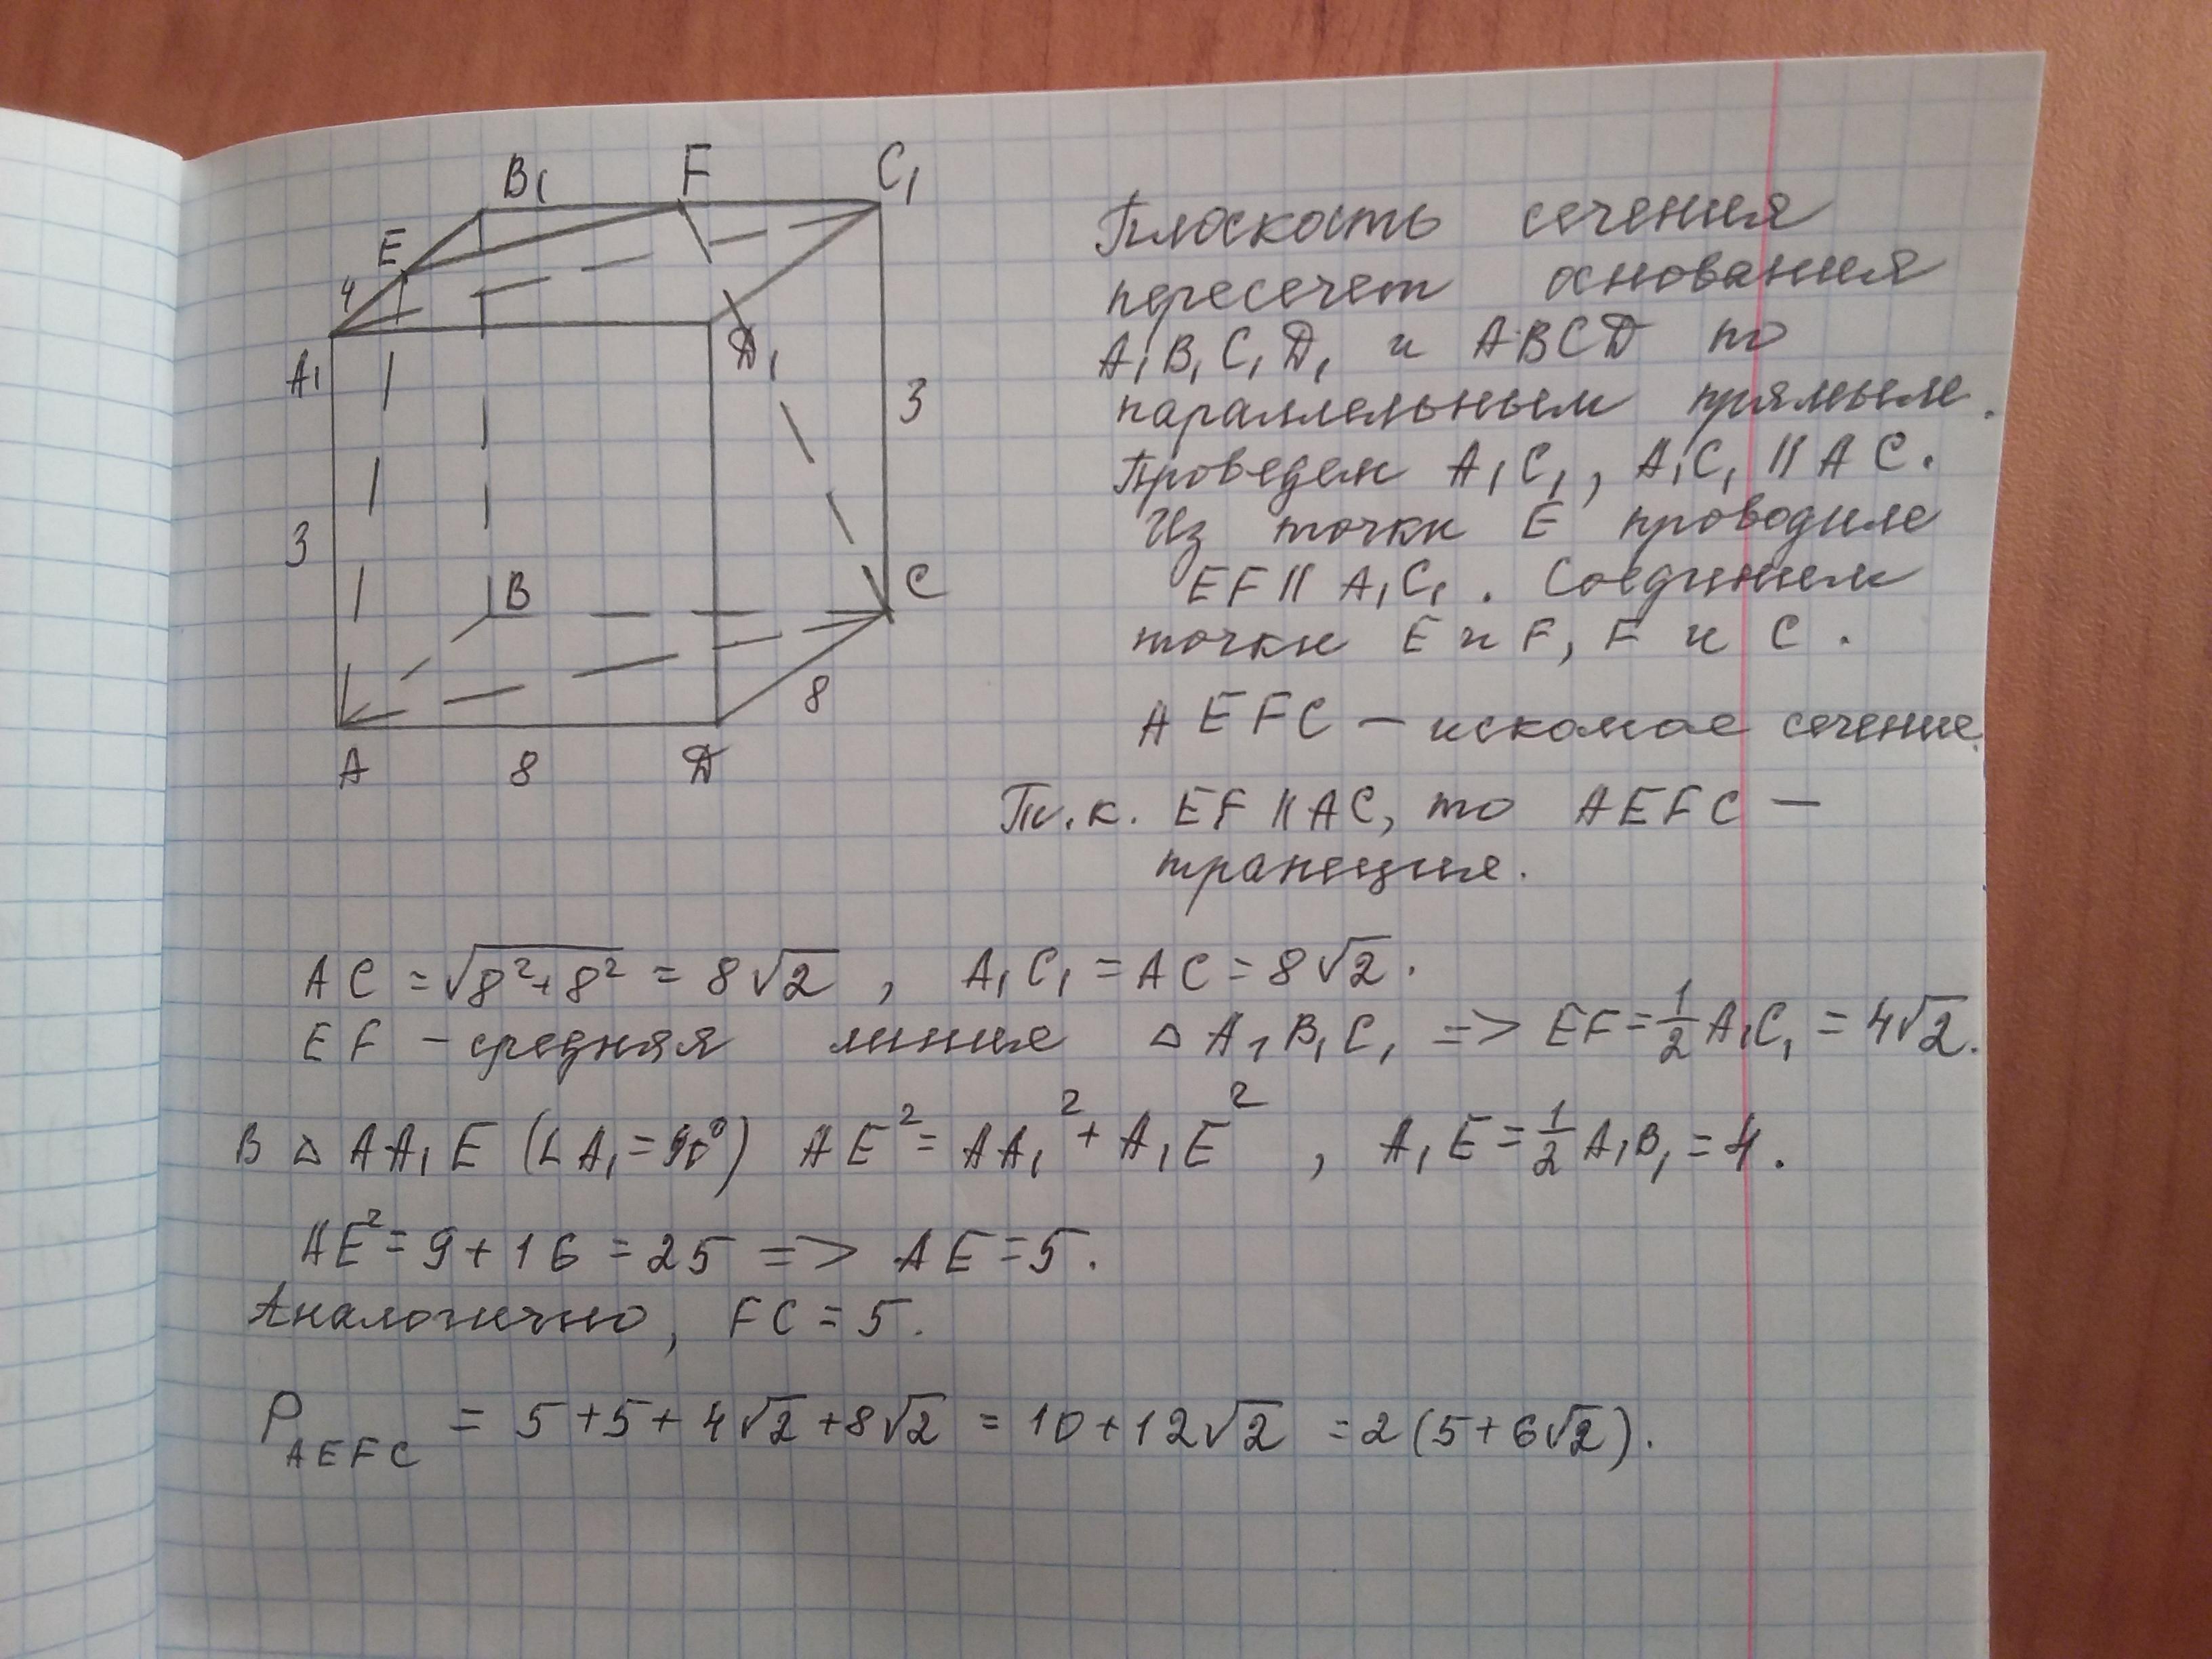 B₁ F C₁
E
4
A₁ D₁ 3
3
B C
8
A 8 D
Плоскость сечения
пересечет основания
A₁B₁C₁D₁ и ABCD по
параллельным прямым.
Проведем A₁C₁, A₁C₁ || AC.
Из точки E проводим
EF || A₁C₁. Соединим
точки E и F, F и C.
AEFC – искомое сечение.
Т.к. EF || AC, то AEFC –
трапеция.
AC = √(8²+8²) = 8√2, A₁C₁ = AC = 8√2.
EF – средняя линия △A₁B₁C₁ => EF = 1/2 A₁C₁ = 4√2.
В △AA₁E (∠A₁=90°) AE² = AA₁² + A₁E², A₁E = 1/2 A₁B₁ = 4.
AE² = 9+16 = 25 => AE = 5.
Аналогично, FC = 5.
P_AEFC = 5+5+4√2+8√2 = 10+12√2 = 2(5+6√2).